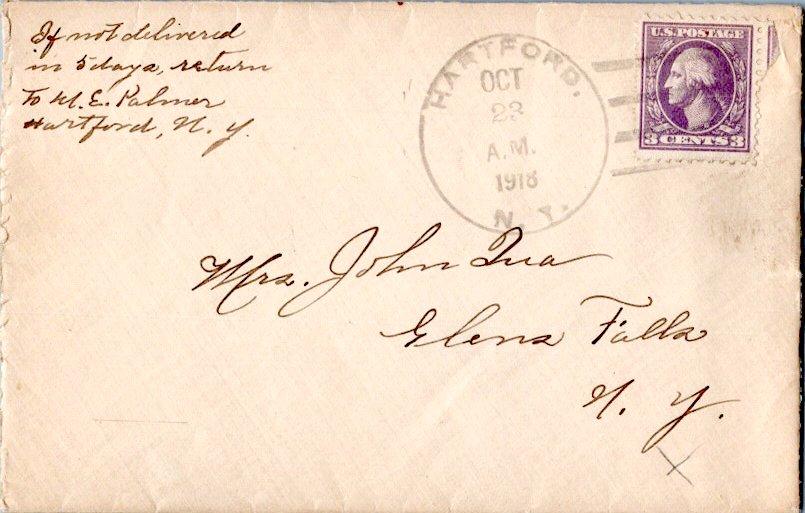 If not delivered
in 5 days, return
To M. E. Palmer
Hartford, N. Y.
HARTFORD.
OCT
23
A.M.
1918
N. Y.
U.S. POSTAGE
3 CENTS 3
Mrs. John Qua
Glens Falls
N. Y.
X